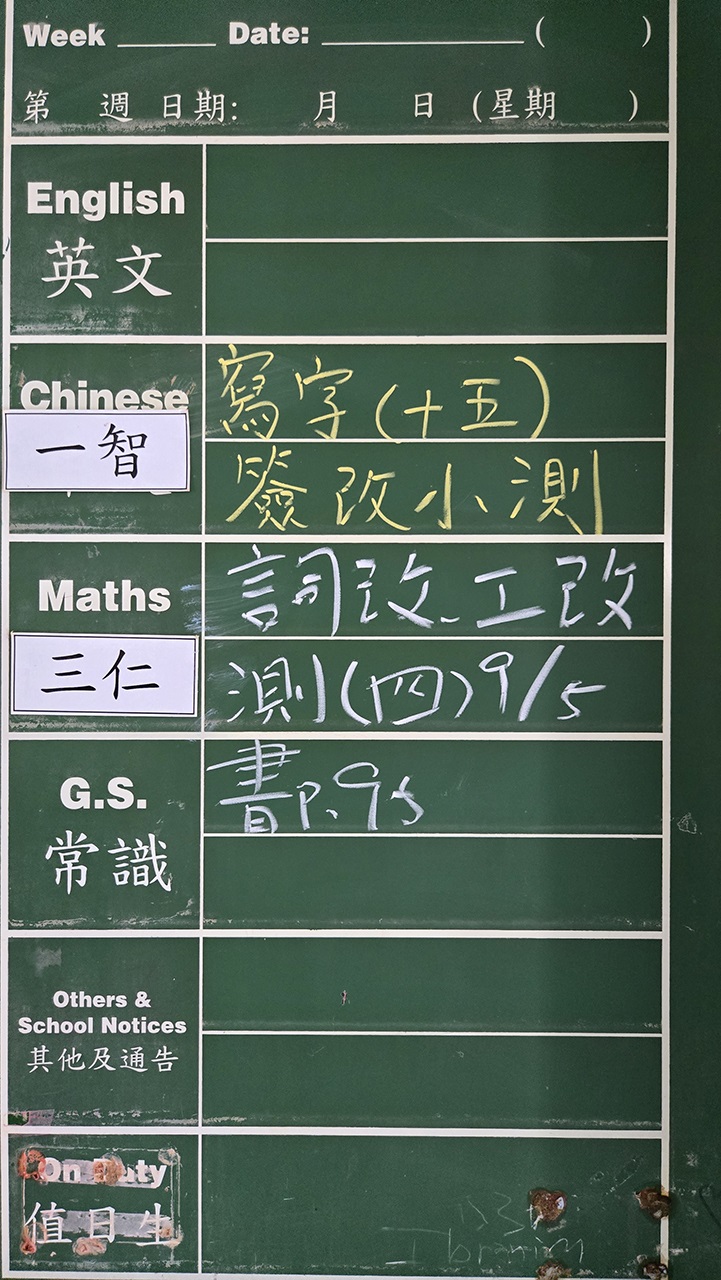 Week ______ Date: ____________ (    )
第 週 日期: 月 日 (星期 )
English
英文
Chinese
一智
寫字(十五)
簽改小測
Maths
三仁
詞改、工改
測(四)9/5
G.S.
常識
書P.95
Others &
School Notices
其他及通告
On Duty
值日生